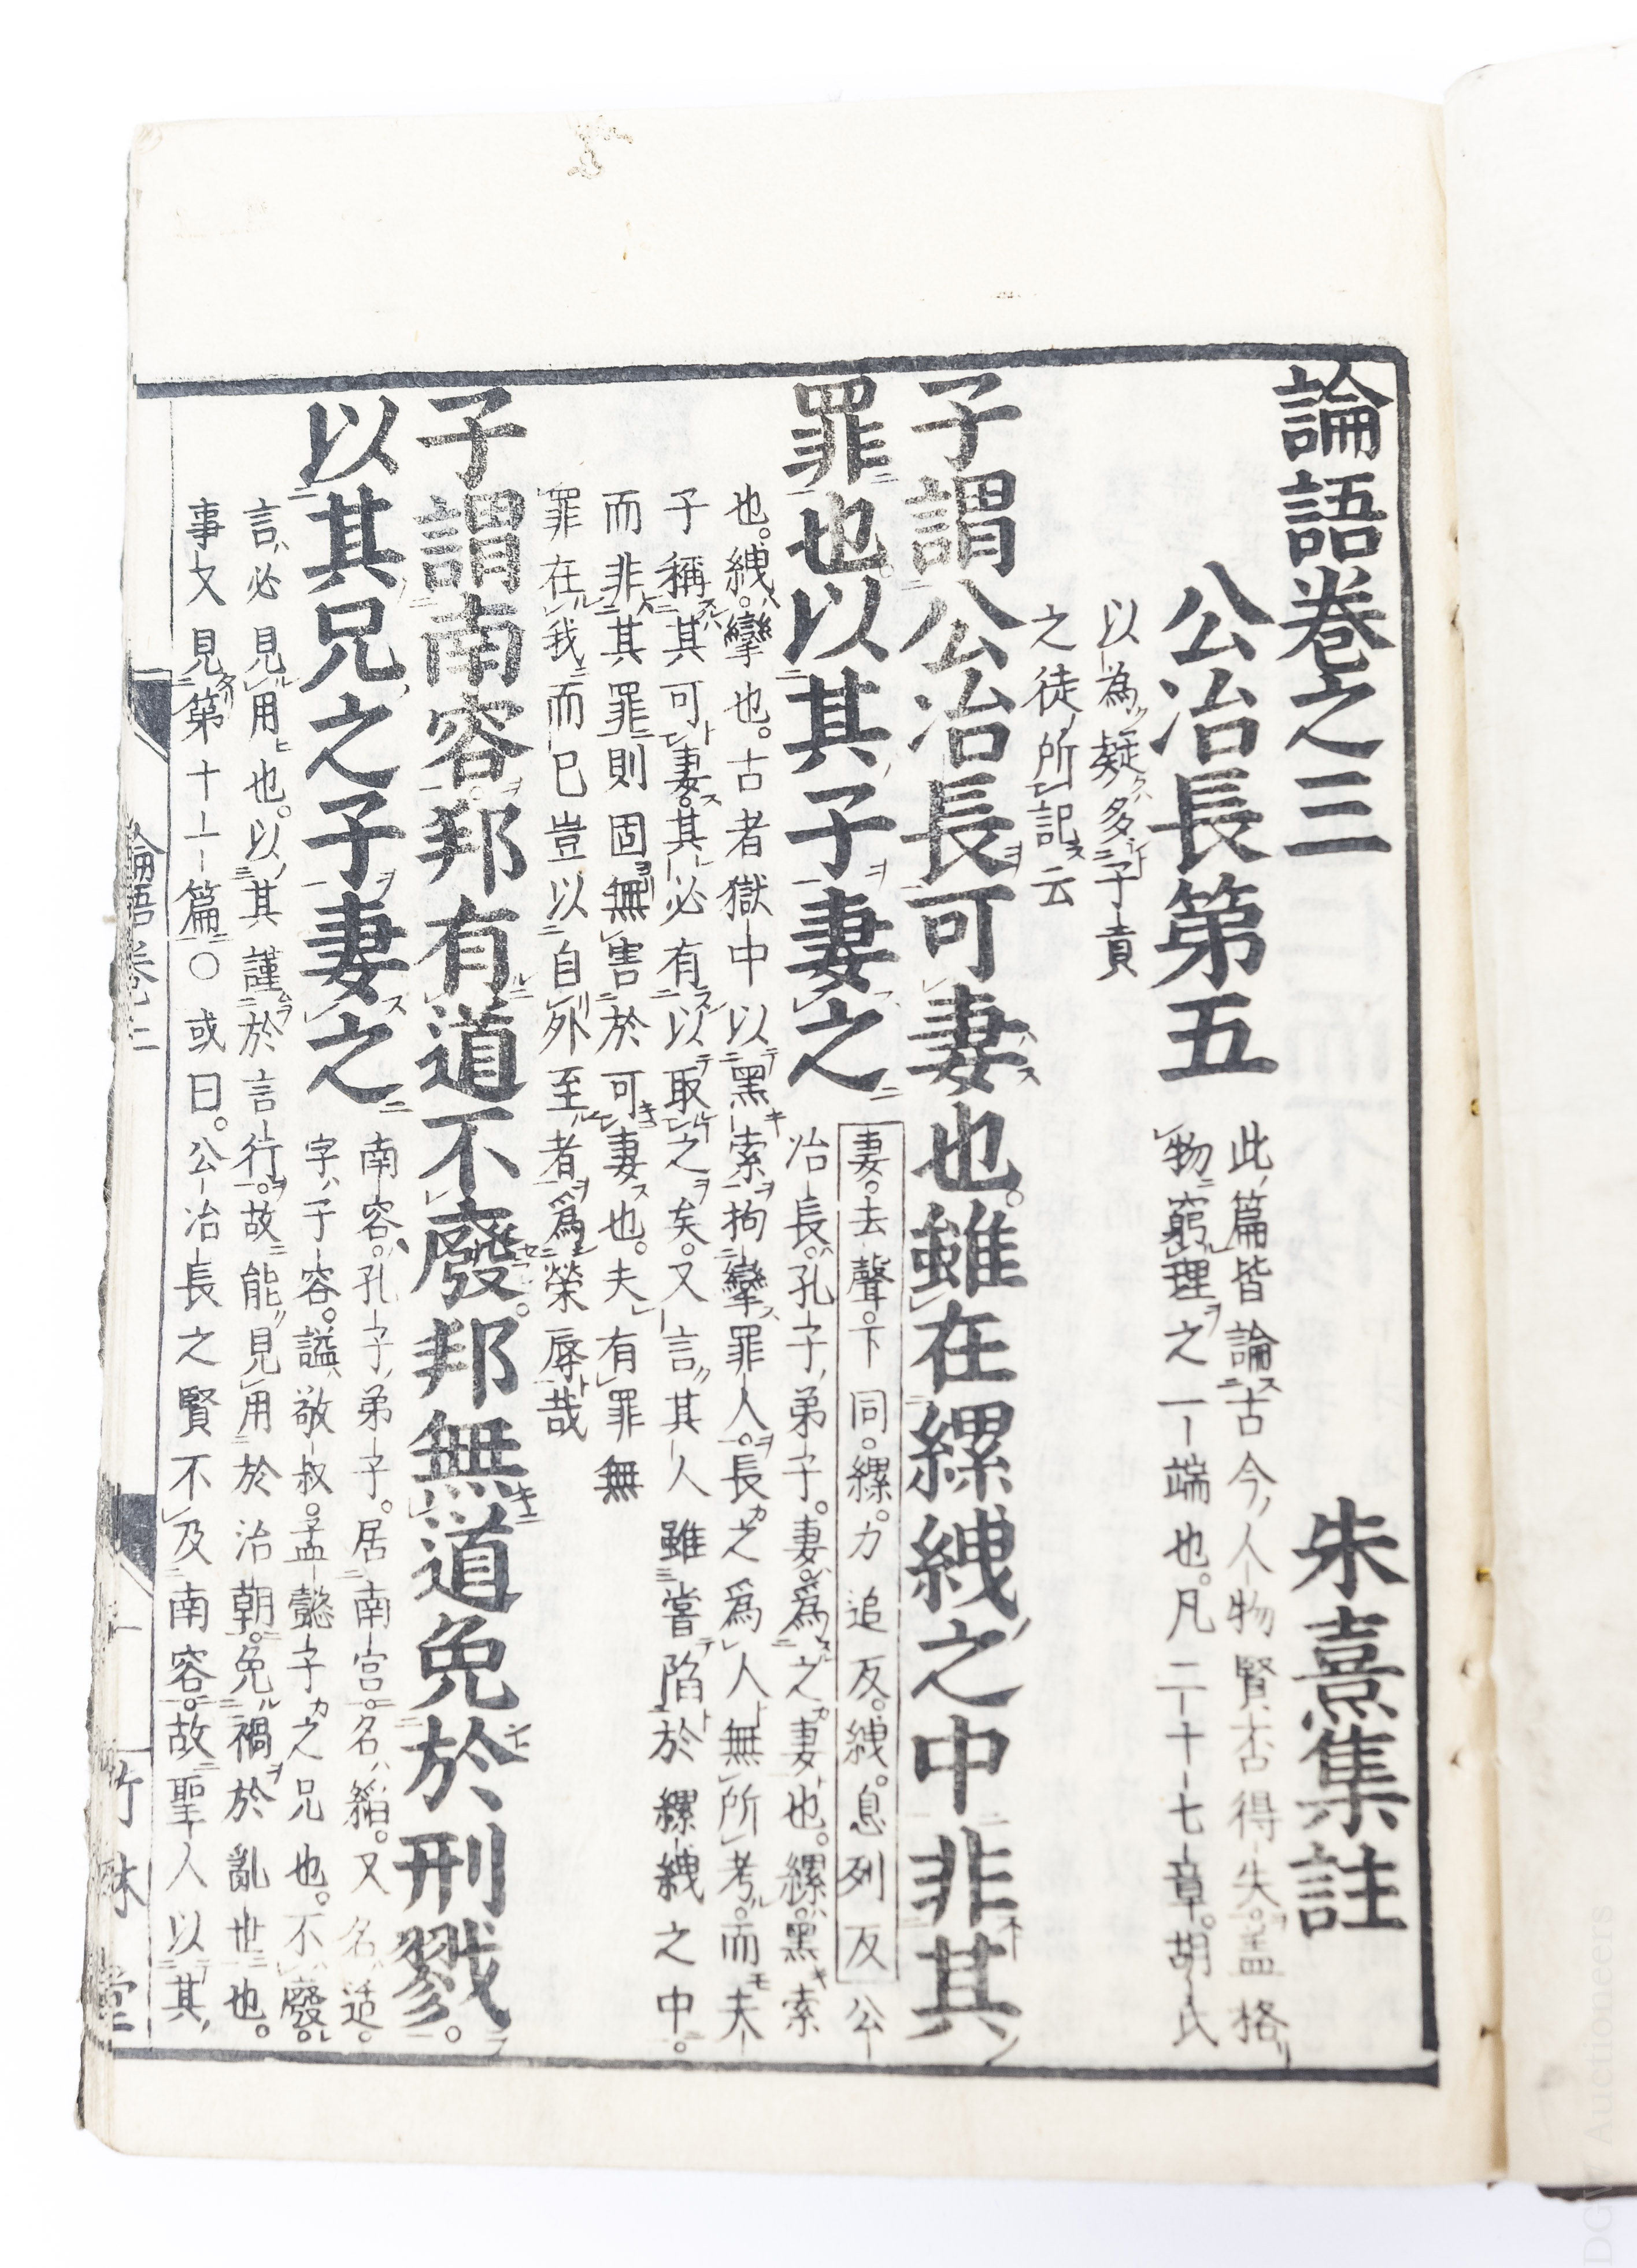 論語卷之三
朱熹集註
公冶長第五
此篇皆論古今人物賢否得失蓋格
物窮理之一端也。凡二十七章。胡氏
以為疑多子貢
之徒所記云
子謂公冶長可妻也。雖在縲絏之中非其
罪也。以其子妻之
妻。去聲。下同。縲。力追反。絏。息列反
公
冶長。孔子弟子。妻。為之妻也。縲。黑索
也。絏。攣也。古者獄中以黑索拘攣罪人。長之爲人無所考。而夫
子稱其可妻。其必有以取之矣。又言其人雖嘗陷於縲絏之中。
而非其罪則固無害於可妻也。夫有罪無
罪在我而已豈以自外至者爲榮辱哉
子謂南容。邦有道不廢。邦無道免於刑戮。
以其兄之子妻之
南容。孔子弟子。居南宮。名縚。又名适。
字子容。謚敬叔。孟懿子之兄也。不廢。
言必見用也。以其謹於言行。故能見用於治朝。免禍於亂世也。
事又見第十一篇○或曰。公冶長之賢不及南容。故聖人以其
論語卷三
一
竹林堂
DGW Auctioneers